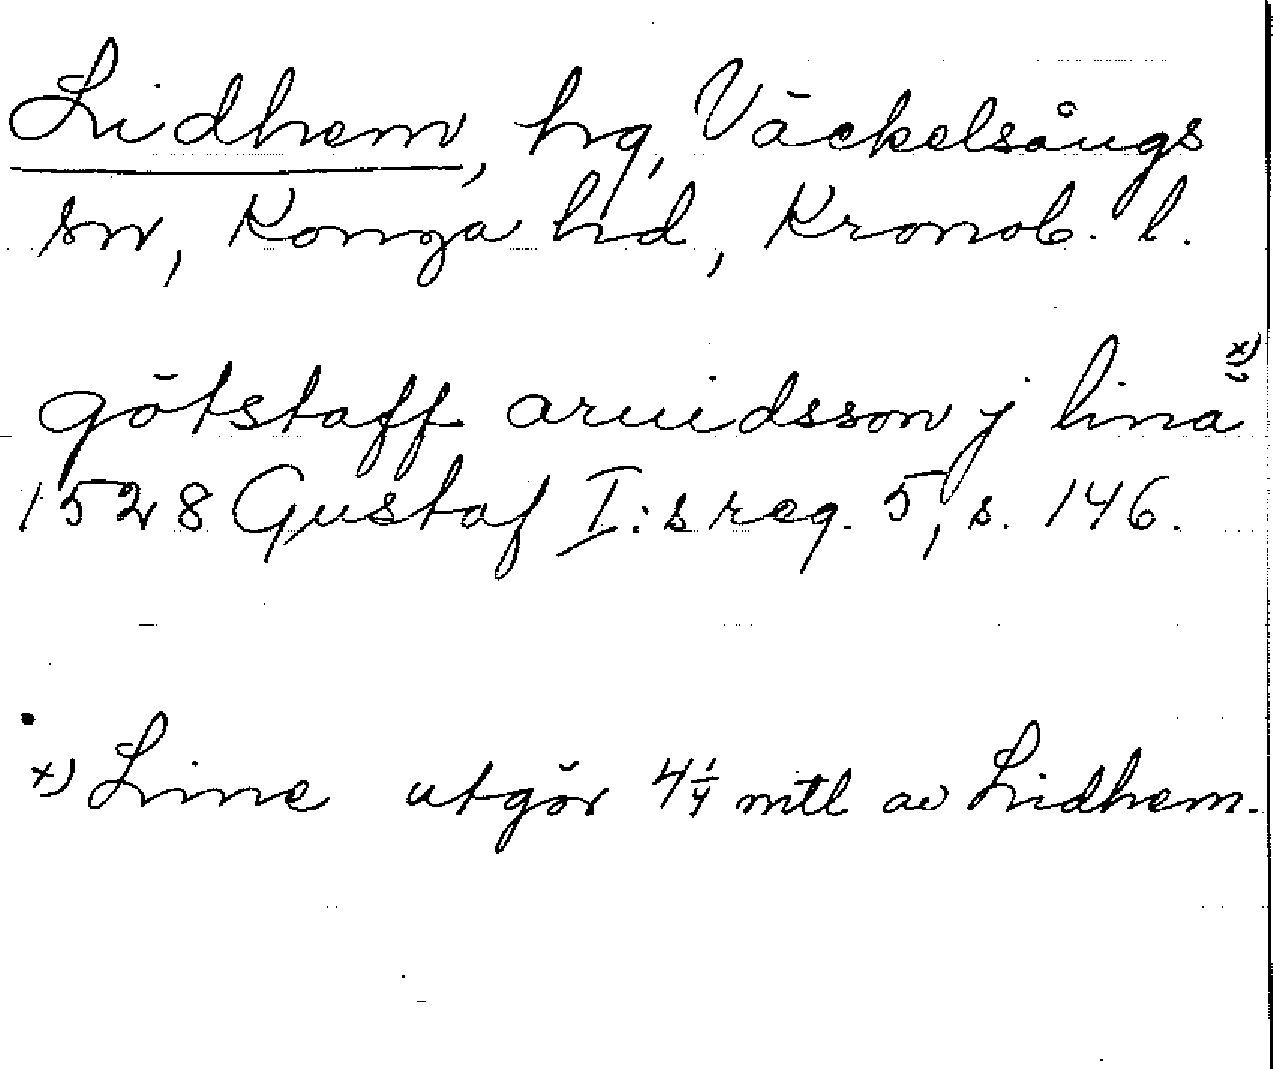 Lidhem, hg, Väckelsångs
sn, Konga hd, Kronob. l.
götstaff aruidsson j lina x)
1528 Gustaf I:s reg. 5, s. 146.
x) Linne utgör 4 1/4 mtl av Lidhem.